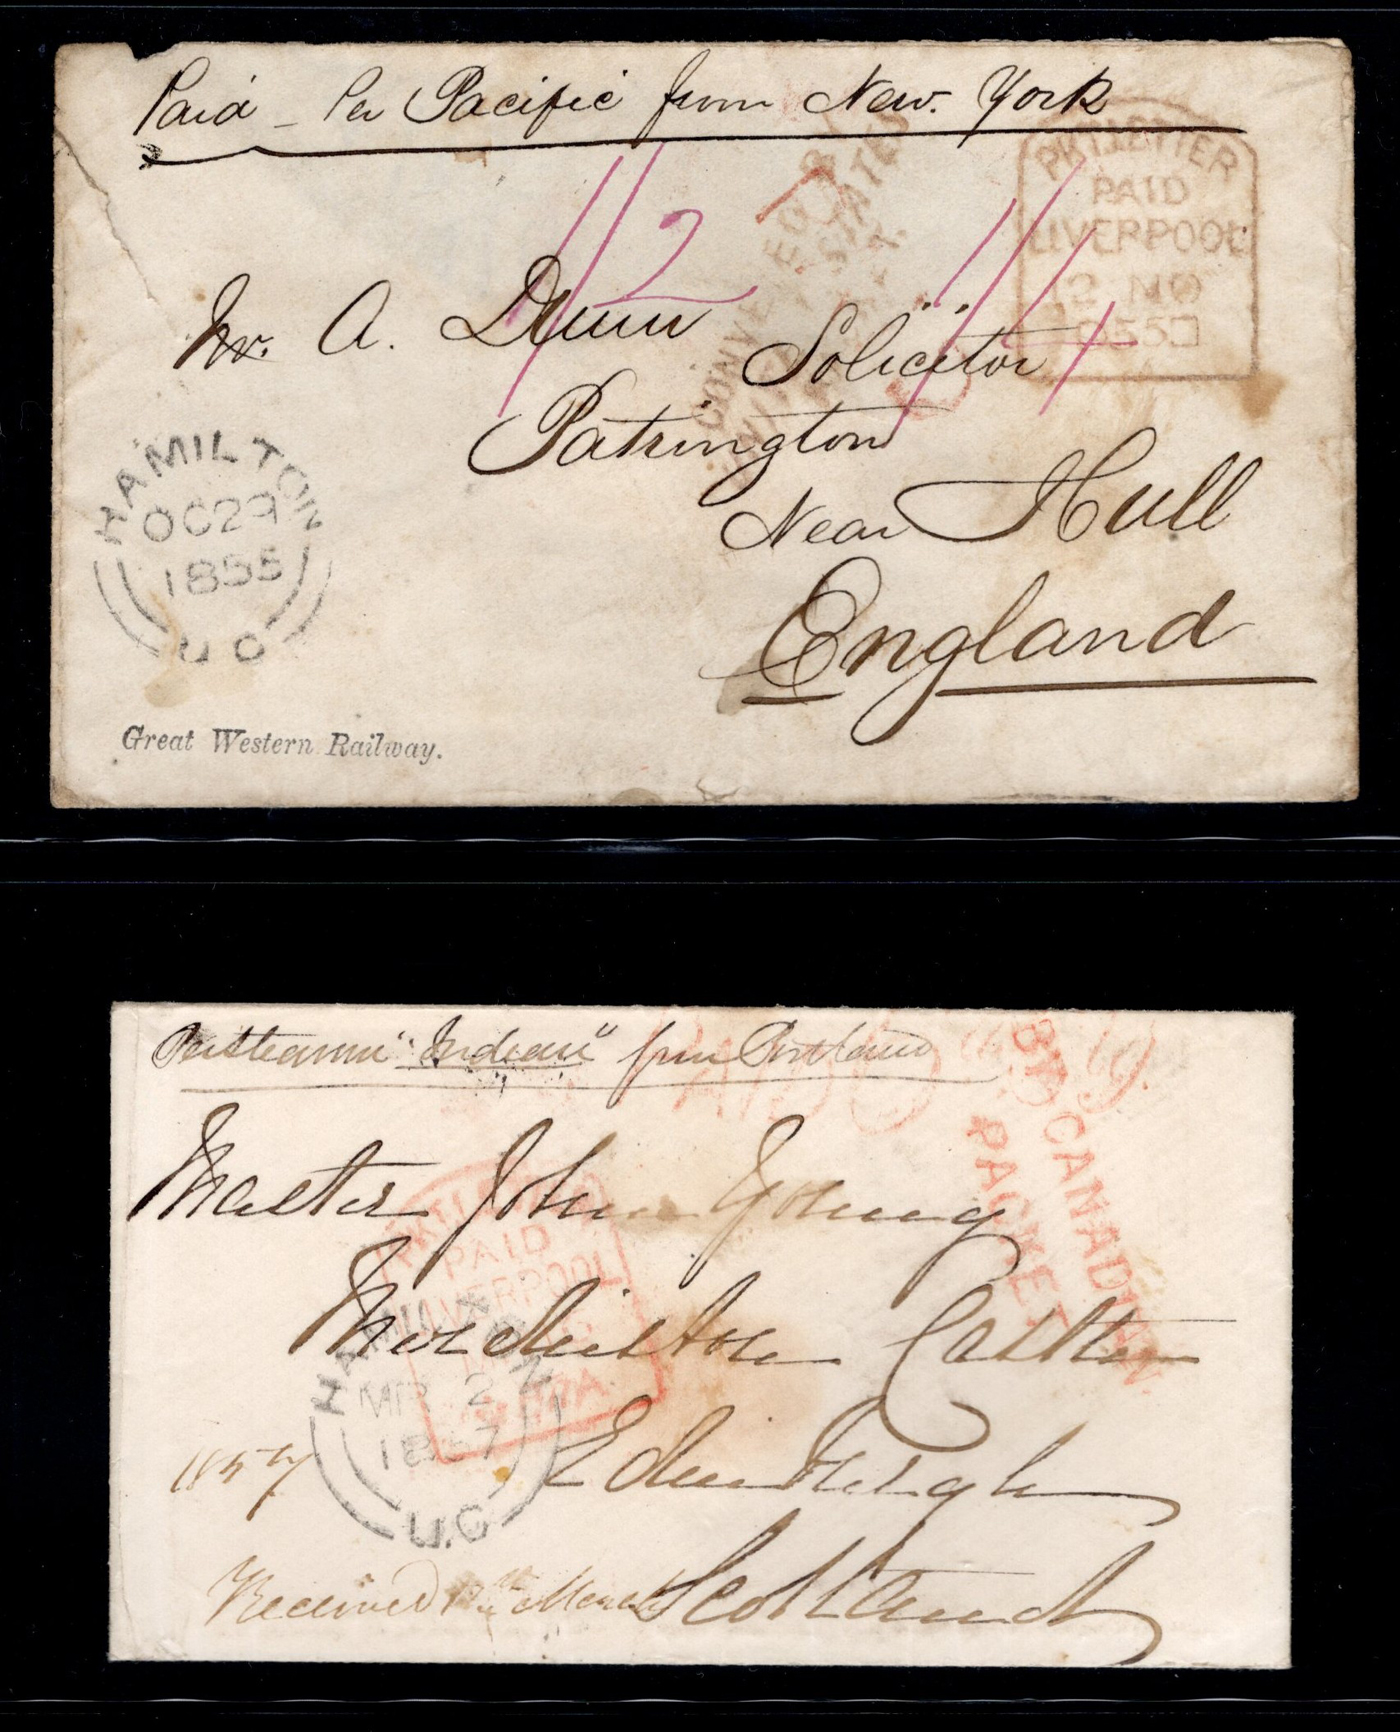 Paid - Per Pacific from New. York
1/2
PKT. LETTER
PAID
LIVERPOOL
12 NO
1855
Mr. A. Dunn
Solicitor
Patrington
Near Hull
England
HAMILTON
OC 29
1855
U C
Great Western Railway.
Per steamer "Indian" from Portland
PAID
BY CANADIAN
PACKET
Master John Young
PAID
LIVERPOOL
Castle
HAMILTON
MR 2
1857
U.C
1857
Edinburgh
Received 17th March
Scotland